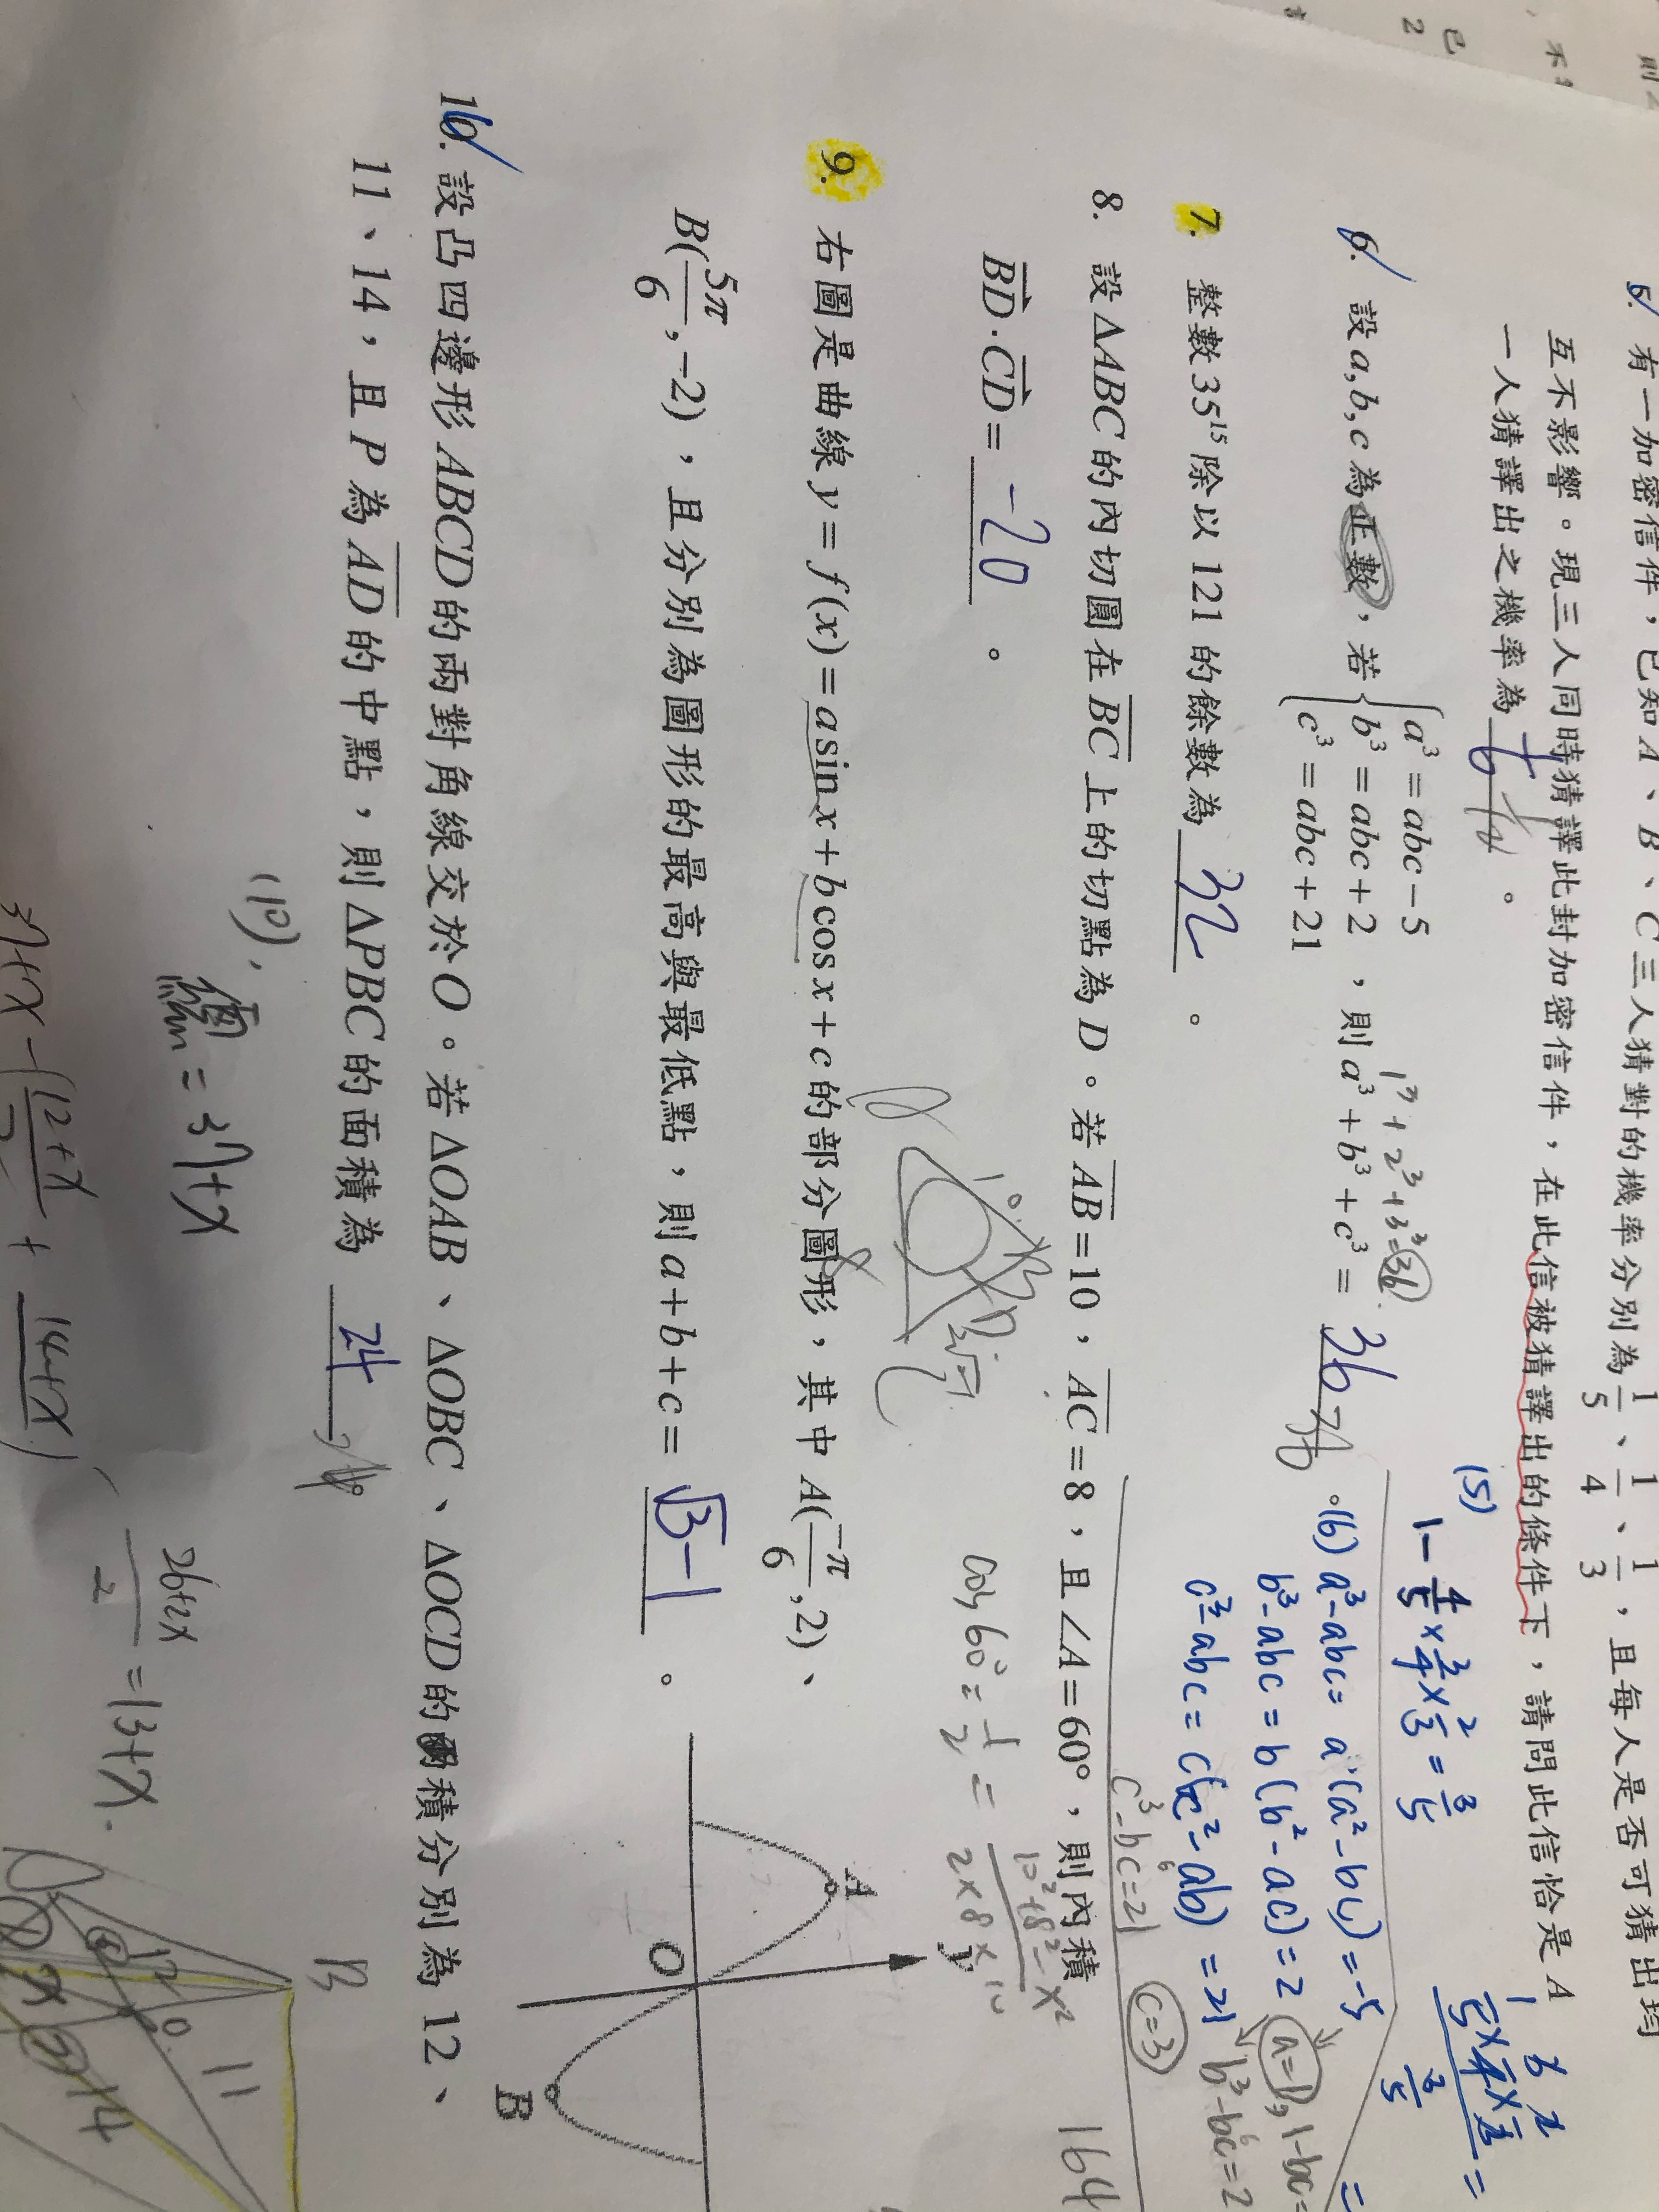 5. 有一加密信件，已知A、B、C三人猜對的機率分別為1/5、1/4、1/3，且每人是否可猜出均
互不影響。現三人同時猜譯此封加密信件，在此信被猜譯出的條件下，請問此信恰是A
一人猜譯出之機率為 。
(5)
1-4/5×3/4×2/3=3/5
6. 設a,b,c為正數，若{a³=abc-5
b³=abc+2，則a³+b³+c³= 36 36。
c³=abc+21
1³+2³+3³=36
(6) a³-abc=a(a²-bc)=-5
b³-abc=b(b²-ac)=2
c³-abc=c(c²-ab)=21
a=1, 1-bc=
b³-bc=2
c³-bc=21
c=3
7. 整數35¹⁵除以121的餘數為 32 。
8. 設ΔABC的內切圓在BC上的切點為D。若AB=10，AC=8，且∠A=60°，則內積
BD·CD= -20 。
cos60°=1/2=(10²+8²-x²)/(2×8×10)
164
9. 右圖是曲線y=f(x)=asinx+bcosx+c的部分圖形，其中A(-π/6,2)、
B(5π/6,-2)，且分別為圖形的最高與最低點，則a+b+c= √3-1 。
A
y
O
B
10. 設凸四邊形ABCD的兩對角線交於O。若ΔOAB、ΔOBC、ΔOCD的面積分別為12、
11、14，且P為AD的中點，則ΔPBC的面積為 24
(10).
=37+x
37+x-(12+x)/2+(14+x)
(26+2x)/2=13+x.
B
12
O
11
x
14